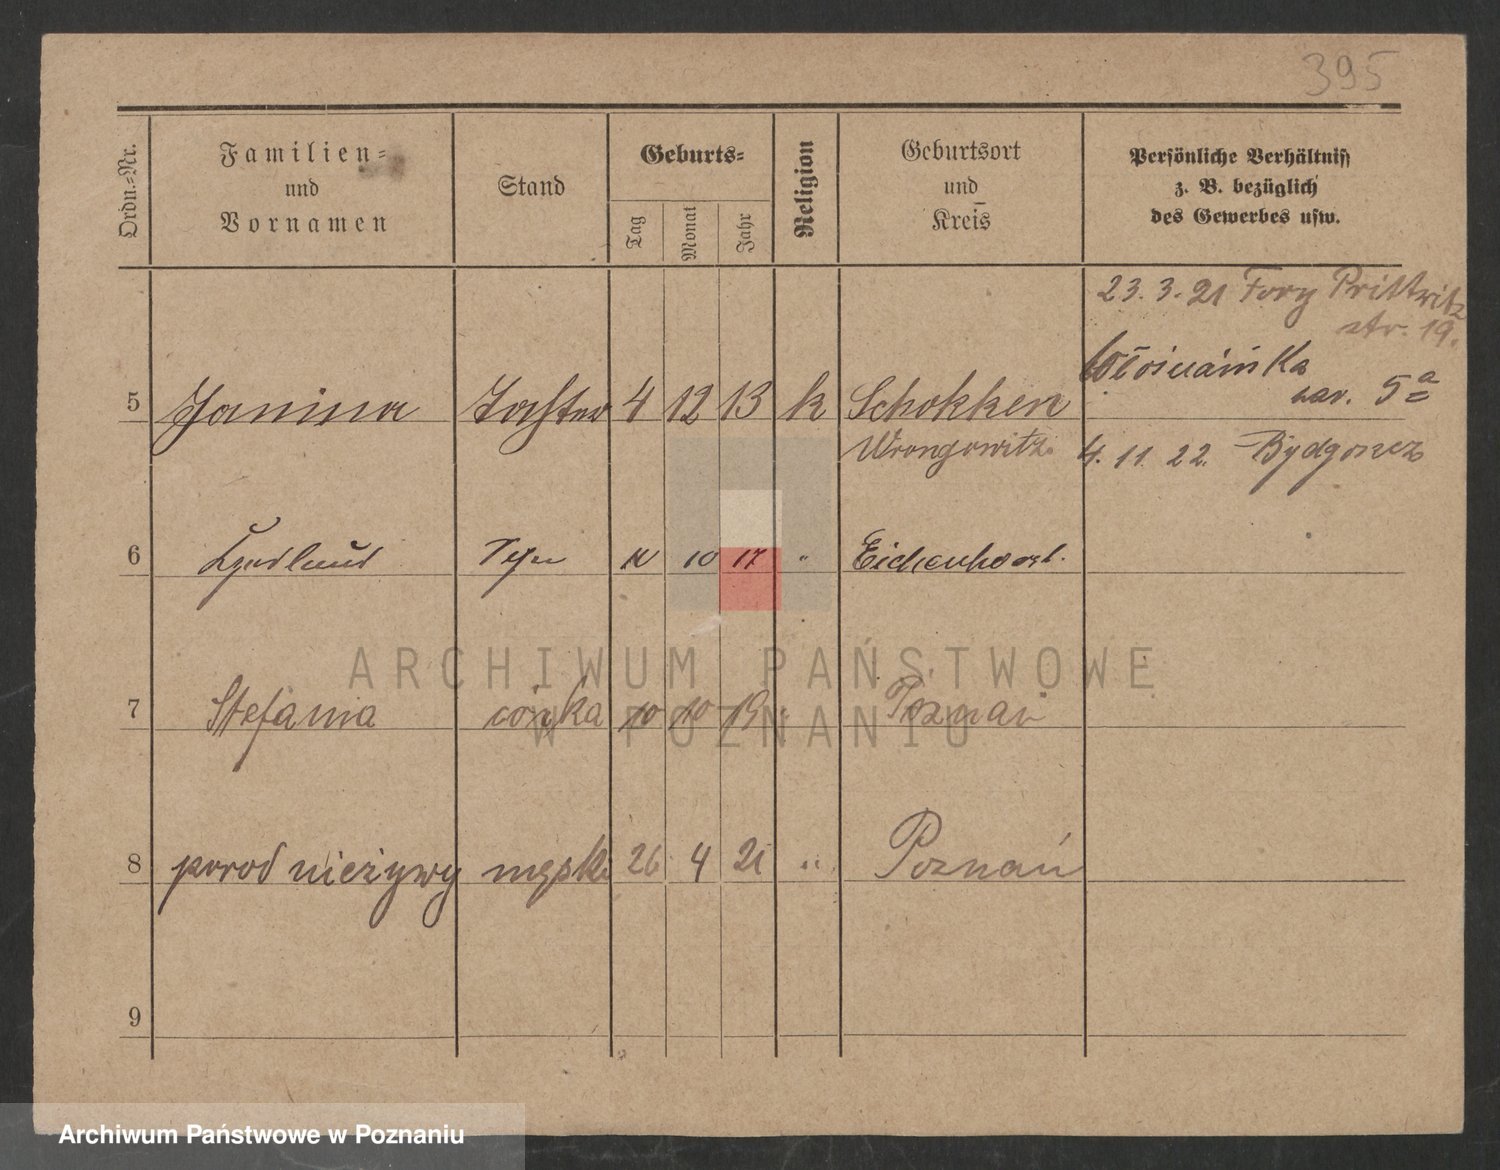 395
Ordn.-Nr.
Familien-
und
Vornamen
Stand
Geburts-
Tag
Monat
Jahr
Religion
Geburtsort
und
Kreis
Persönliche Verhältniss
z. B. bezüglich
des Gewerbes usw.
23. 3. 21 Prittwitz
str. 19.
5 Janina Tochter 4 12 13 k Schokken
5a
Wrongowitz. 4. 11. 22. Bydgoszcz
6 10 17 " Eichenhorst.
7 Stefania córka 10 10 19 Poznań
8 porod nieżywy męsk. 26 4 21 " Poznań
9
ARCHIWUM PAŃSTWOWE
W POZNANIU
Archiwum Państwowe w Poznaniu